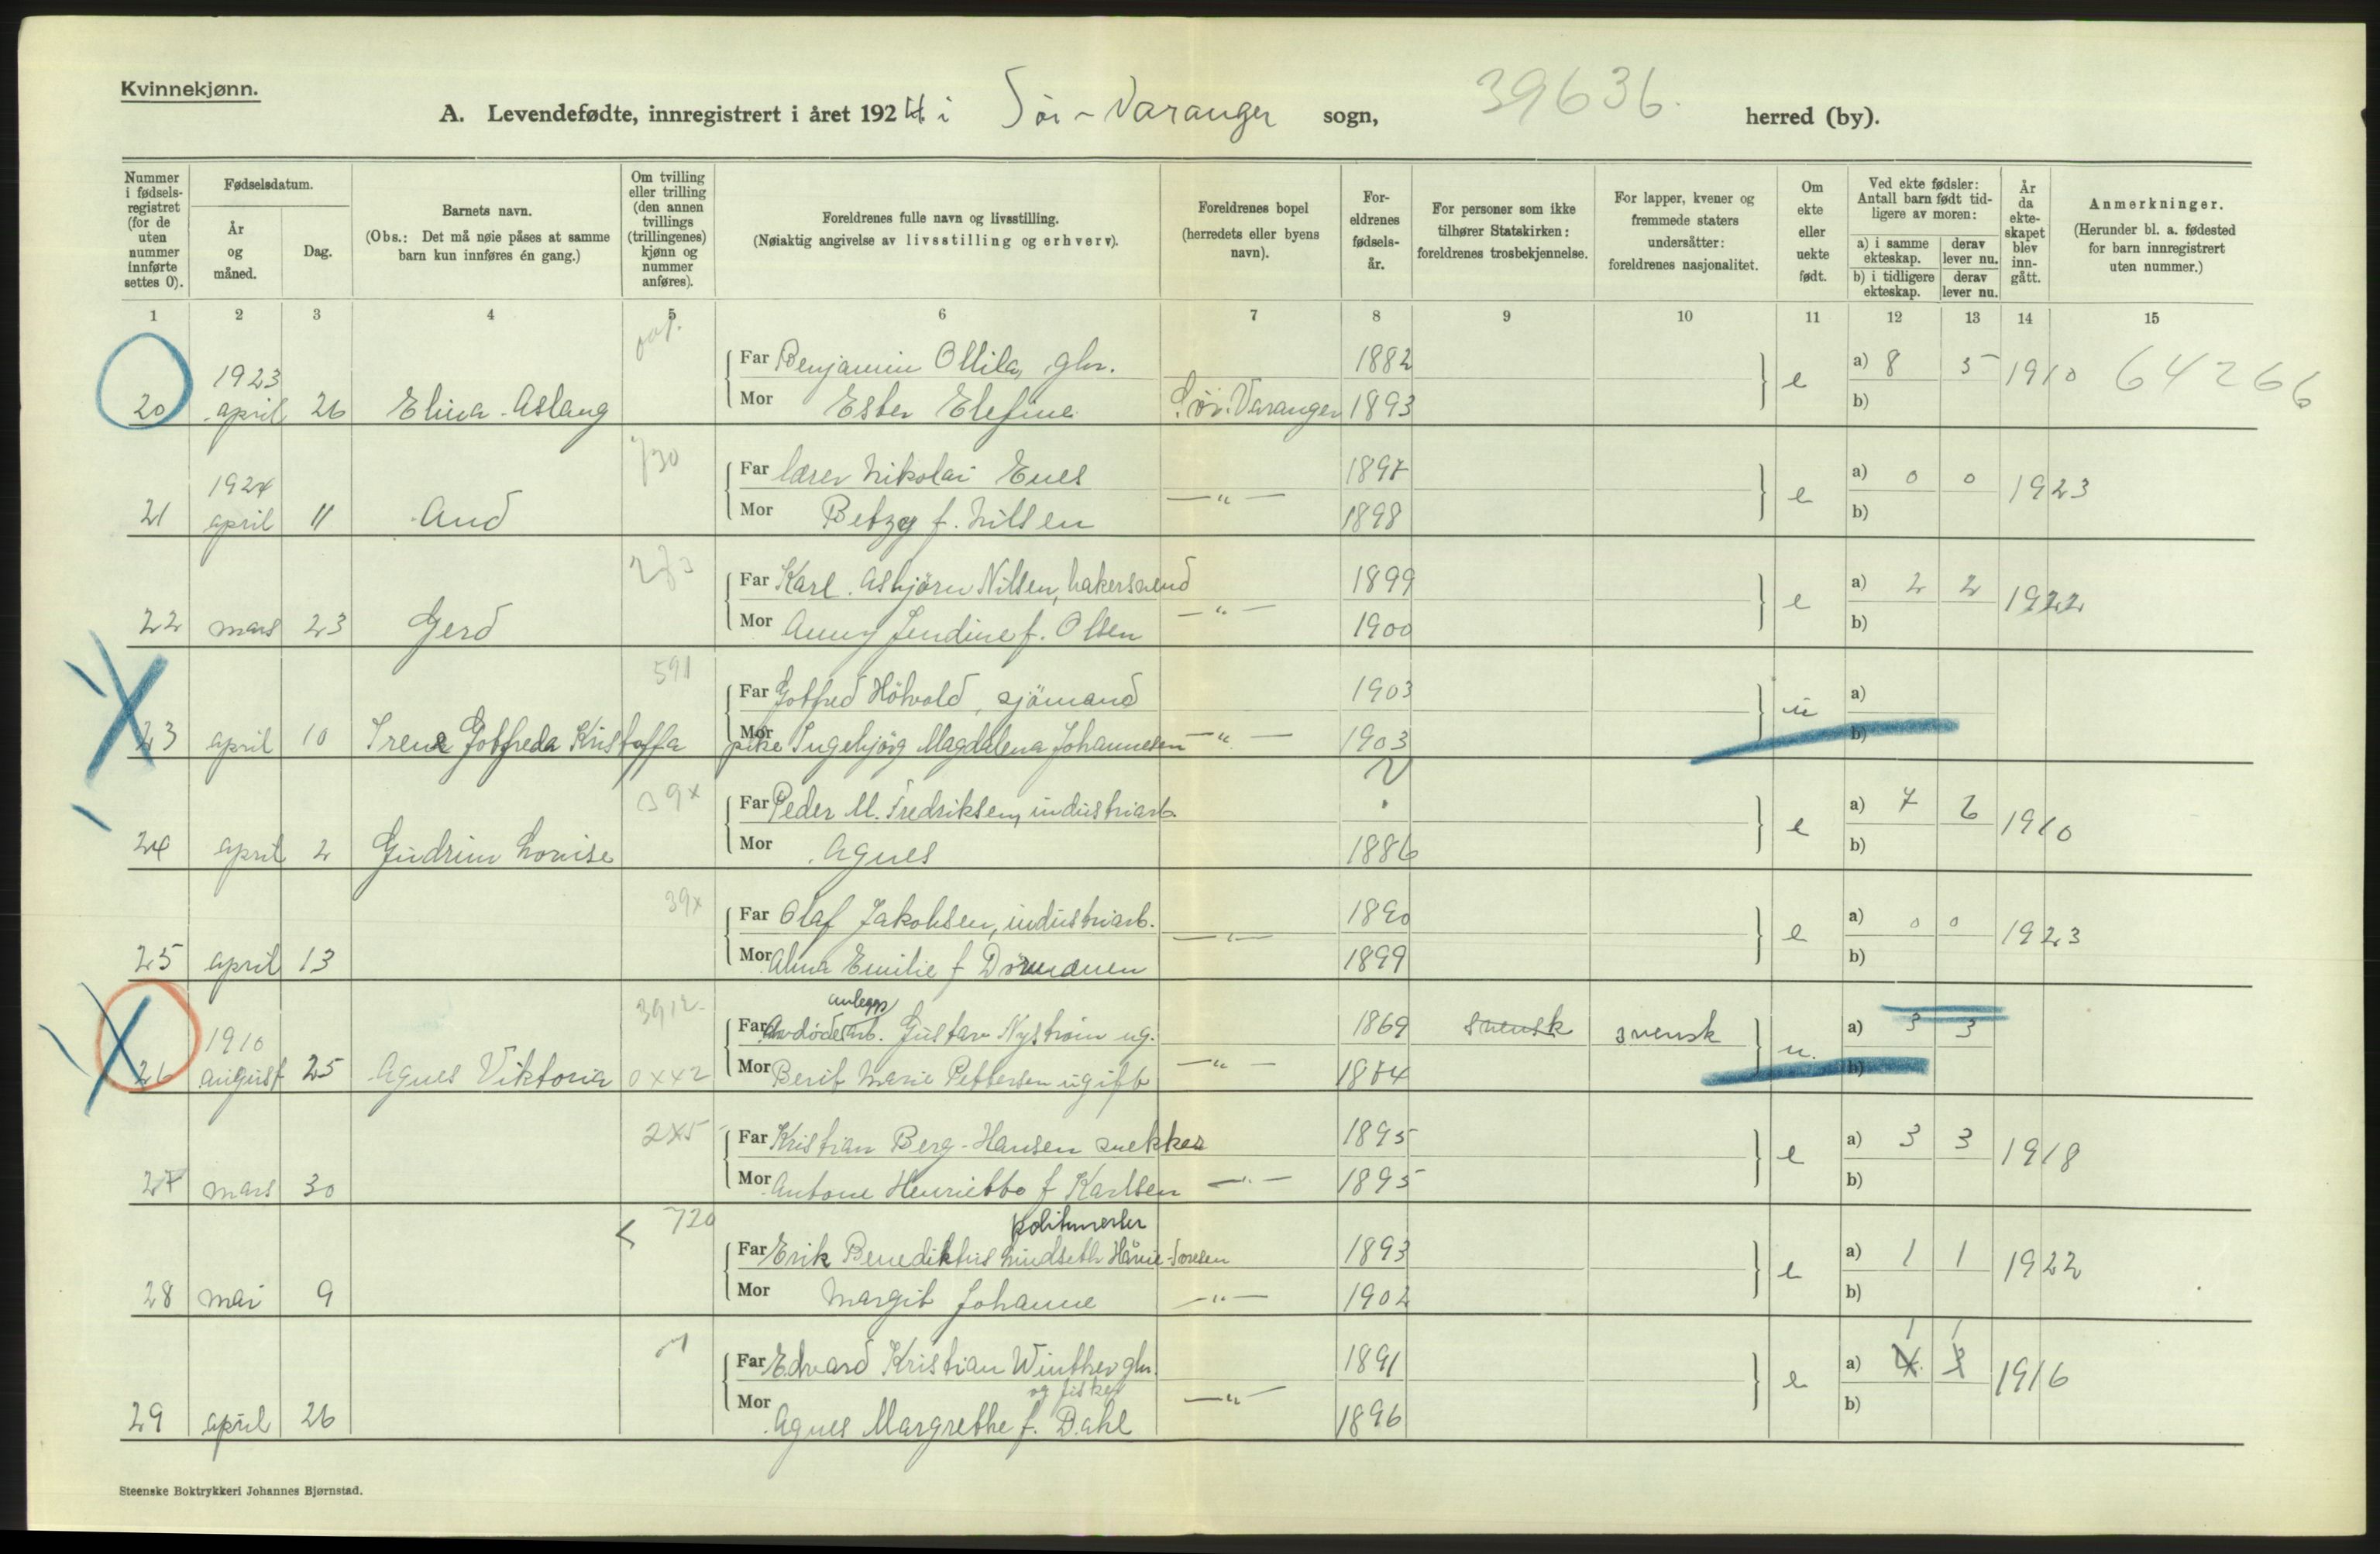 Kvinnekjønn.
A. Levendefødte, innregistrert i året 1924 i Sør-Varanger sogn, 39636. herred (by).
Nummer i fødsels-registret (for de uten nummer innførte settes 0).
Fødselsdatum.
År og måned.
Dag.
Barnets navn.
(Obs.: Det må nøie påses at samme barn kun innføres én gang.)
Om tvilling eller trilling (den annen tvillings (trillingenes) kjønn og nummer anføres).
Foreldrenes fulle navn og livsstilling.
(Nøiaktig angivelse av livsstilling og erhverv).
Foreldrenes bopel (herredets eller byens navn).
For-eldrenes fødsels-år.
For personer som ikke tilhører Statskirken: foreldrenes trosbekjennelse.
For lapper, kvener og fremmede staters undersåtter: foreldrenes nasjonalitet.
Om ekte eller uekte født.
Ved ekte fødsler: Antall barn født tid-ligere av moren:
a) i samme ekteskap.
derav lever nu.
b) i tidligere ekteskap.
derav lever nu.
År da ekte-skapet blev inn-gått.
Anmerkninger.
(Herunder bl. a. fødested for barn innregistrert uten nummer.)
1 2 3 4 5 6 7 8 9 10 11 12 13 14 15
Far Benjamin Ollila, gbr. 1882 a) 8 5 1910 64266
20 1923 april 26 Elina Aslaug Mor Ester Elefine Sør-Varanger 1893 e b)
730
Far lærer Nikolai Enes 1897 a) 0 0 1923
21 1924 april 11 Aud Mor Betzy f. Nilsen —"— 1898 e b)
Far Karl Asbjörn Nilsen, bakersvend 1899 a) 2 2 1922
22 mars 23 Gerd Mor Anny Jendine f. Olsen —"— 1900 e b)
591
Far Gotfred Hötvold, sjömand 1903 a)
23 april 10 Irene Gotfreda Kristoffa Mor pike Ingebjörg Magdalena Johannesen —"— 1903 u b)
39x
Far Peder M. Fredriksen, industriarb. a) 7 6 1910
24 april 2 Gudrun Lovise Mor Agnes 1886 e b)
39x
Far Olaf Jakobsen, industriarb. 1890 a) 0 0 1923
25 april 13 Mor Alma Emilie f —"— 1899 e b)
3912
anlegg
Far Avdøde arb. Gustav Nyström ug. 1869 svensk svensk a) 3 3
26 1910 august 25 Agnes Viktoria 0xx2 Mor Berit Marie Pettersen ugift —"— 1874 u. b)
2x5
Far Kristian Berg-Hansen snekker 1895 a) 3 3 1918
27 mars 30 Mor Antone Henriette f Karlsen —"— 1895 e b)
720
politimester
Far Erik Benediktus Lindseth Håvie-Toresen 1893 a) 1 1 1922
28 mai 9 Mor Margit Johanne —"— 1902 e b)
1 1
Far Edvard Kristian Winther gbr. 1891 a) 4 3 1916
og fisker
29 april 26 Mor Agnes Margrethe f. Dahl —"— 1896 e b)
Steenske Boktrykkeri Johannes Bjørnstad.